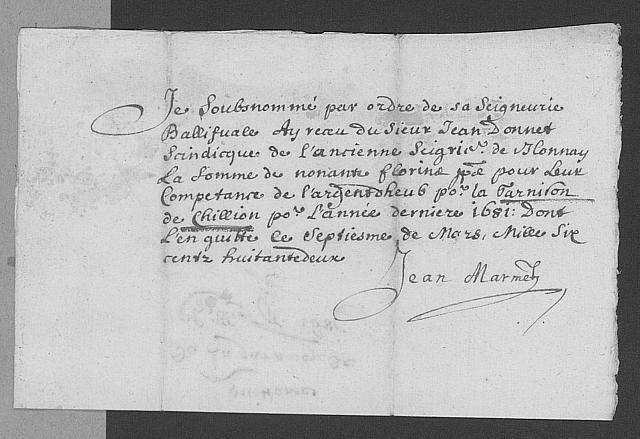 Je Soubsnommé par ordre de sa Seigneurie
Ballifuale Ay receu du Sieur Jean Donnet
Scindicque de l'ancienne Seigrie. de Blonnay
La Somme de nonante florins pte pour Leur
Competance de l'argent dheub por. la Garnison
de Chillion por. L'année derniere 1681: Dont
L'en quitte ce Septiesme de Mars, Mille Six
centz huitantedeux
Jean Marmet